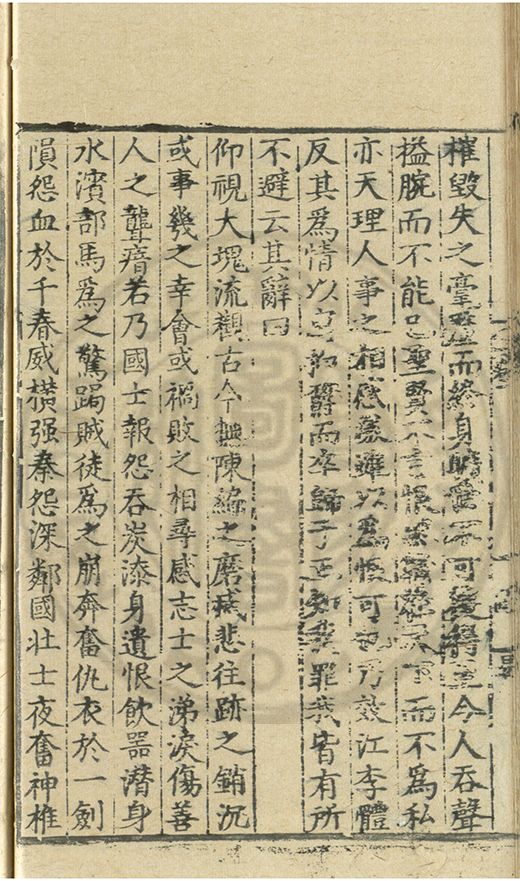 摧毀失之毫釐而終身不可今人吞聲
搤腕而不能已聖賢不言恨而不爲私
亦天理人事之相感遂以爲恨可也乃效江李體
反其爲情以寫而卒歸于正知我罪我皆有所
不避云其辭曰
仰視大塊流觀古今撫陳編之磨滅悲往跡之銷沉
或事幾之幸會或禍敗之相尋感志士之涕淚傷善
人之聾瘖若乃國士報怨吞炭漆身遺恨飲器潛身
水濱部馬爲之驚跼賊徒爲之崩奔奮仇衣於一劍
隕怨血於千春威橫强秦怨深鄰國壯士夜奮神椎